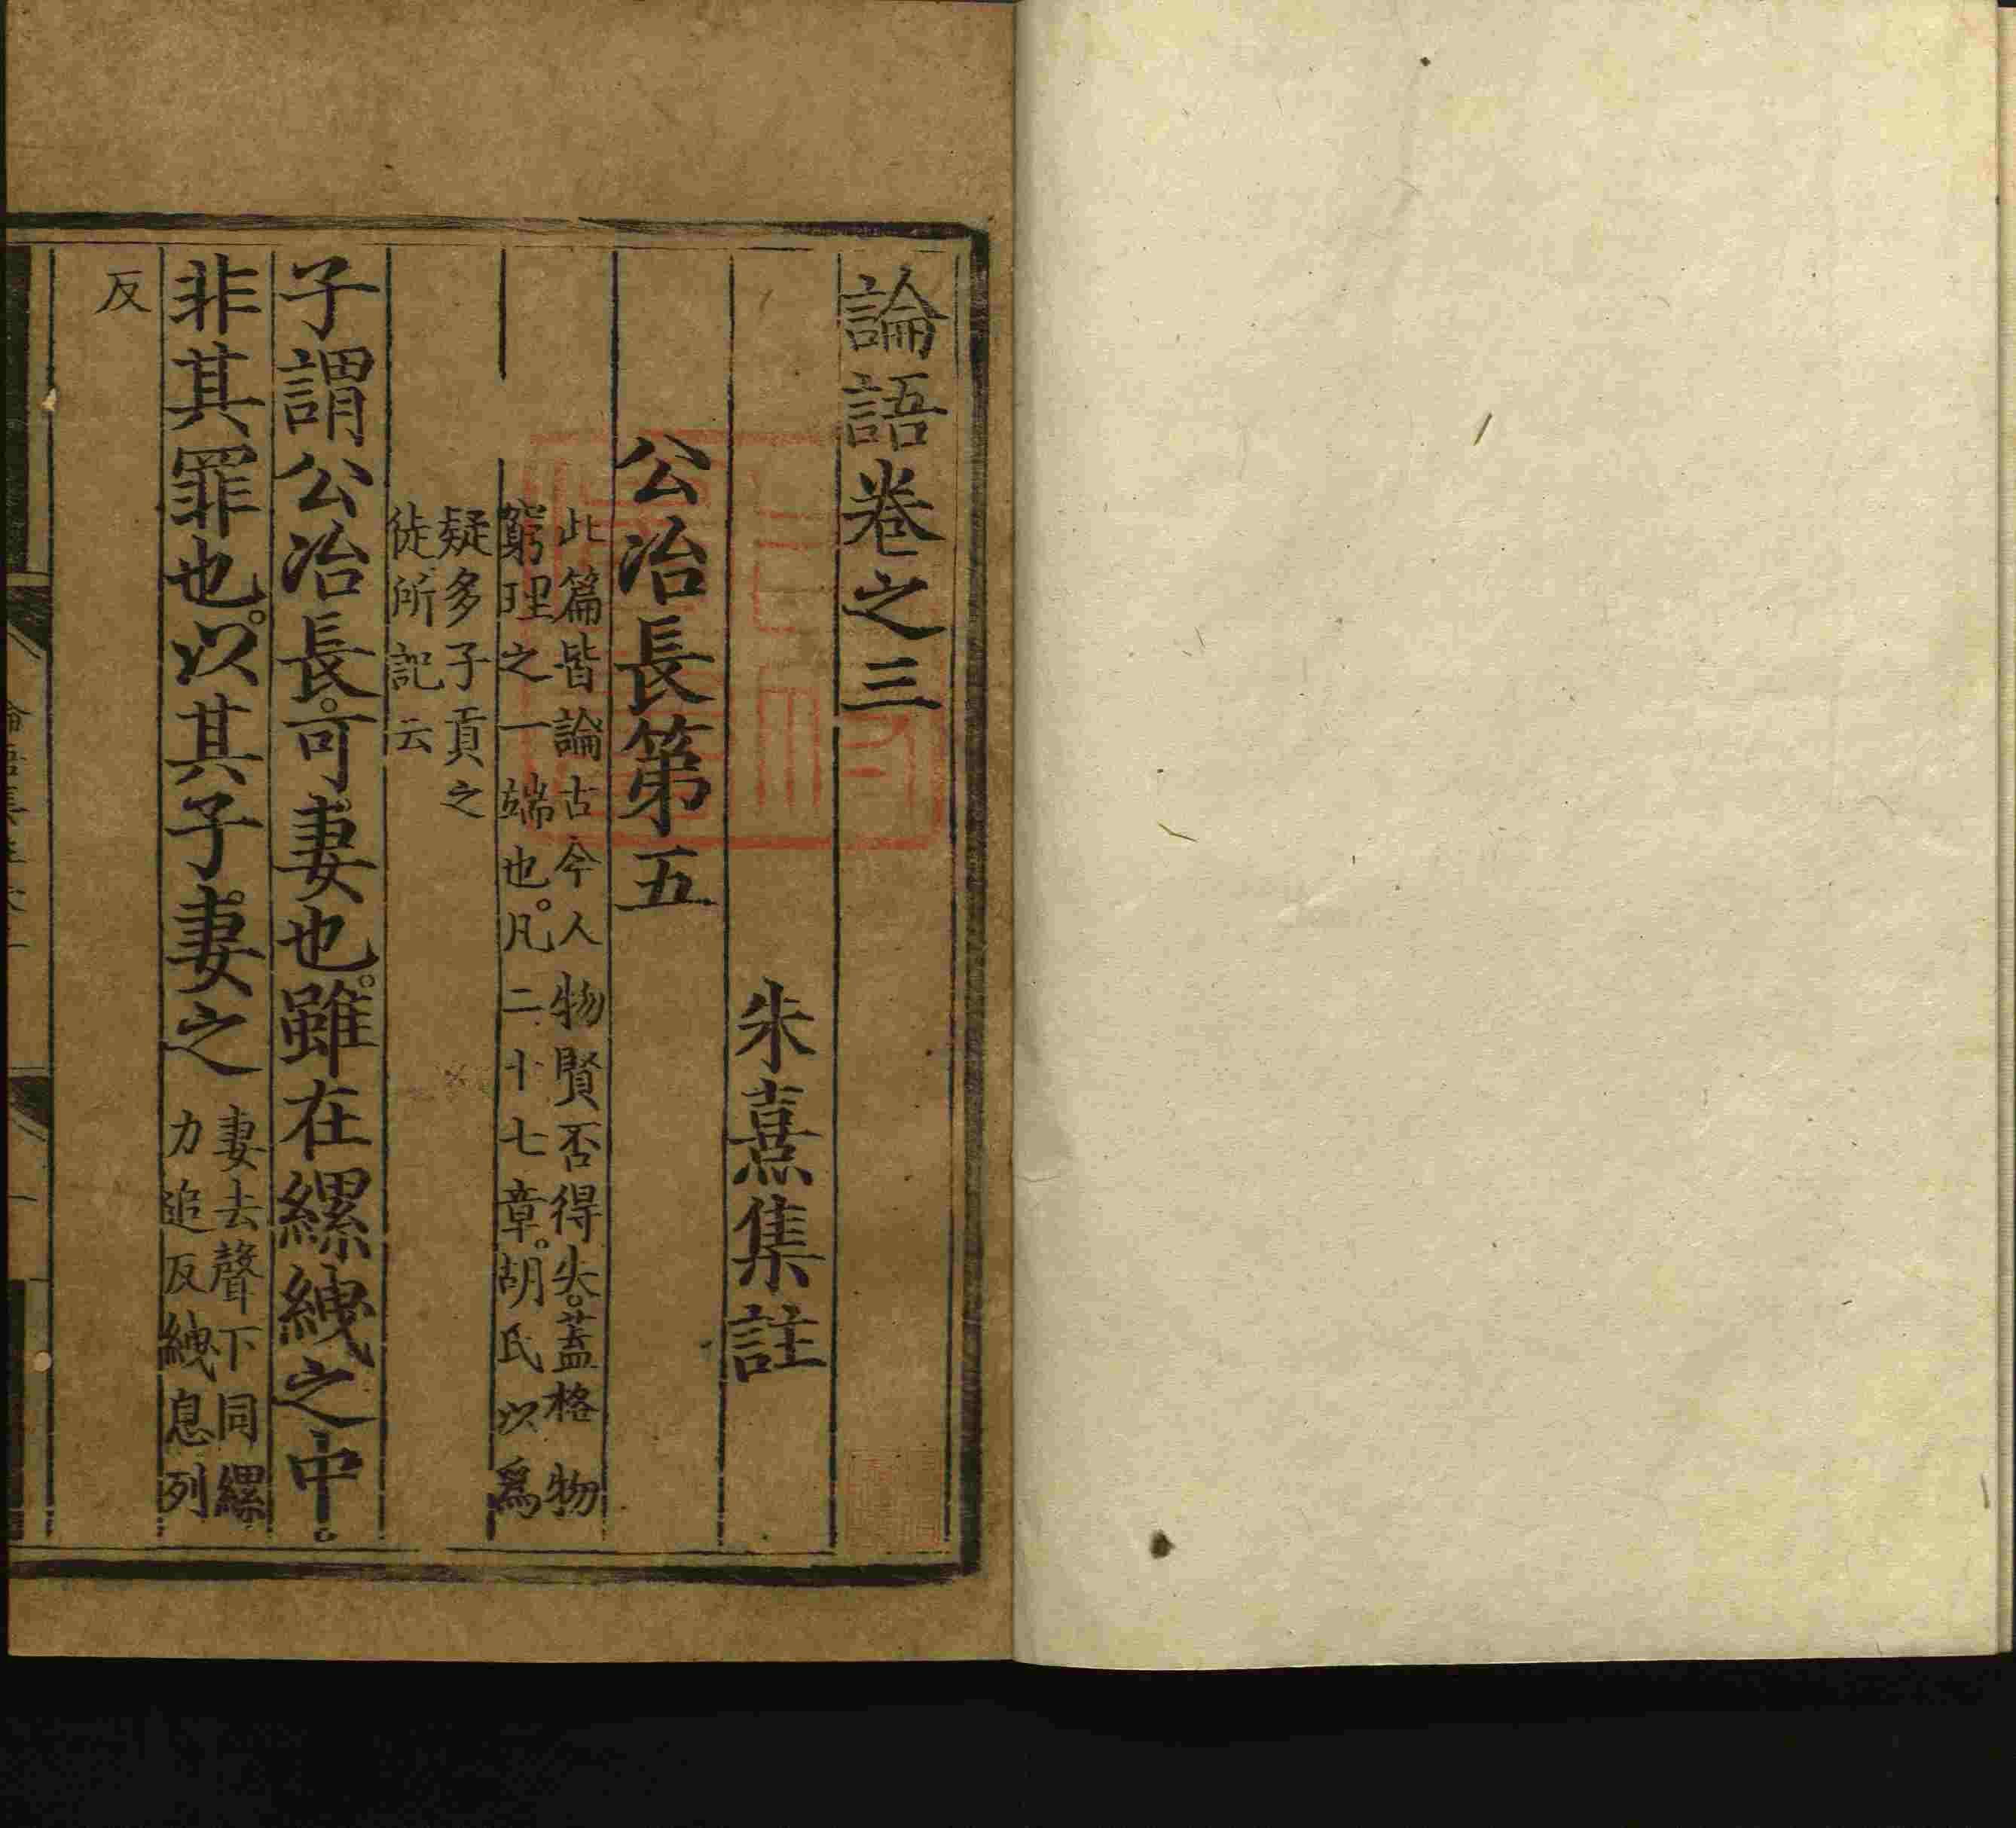 論語卷之三
朱熹集註
公冶長第五
此篇皆論古今人物賢否得失。蓋格物
窮理之一端也。凡二十七章。胡氏以爲
疑多子貢之
徒所記云
子謂公冶長。可妻也。雖在縲絏之中。
非其罪也。以其子妻之
妻去聲下同縲
力追反絏息列
反